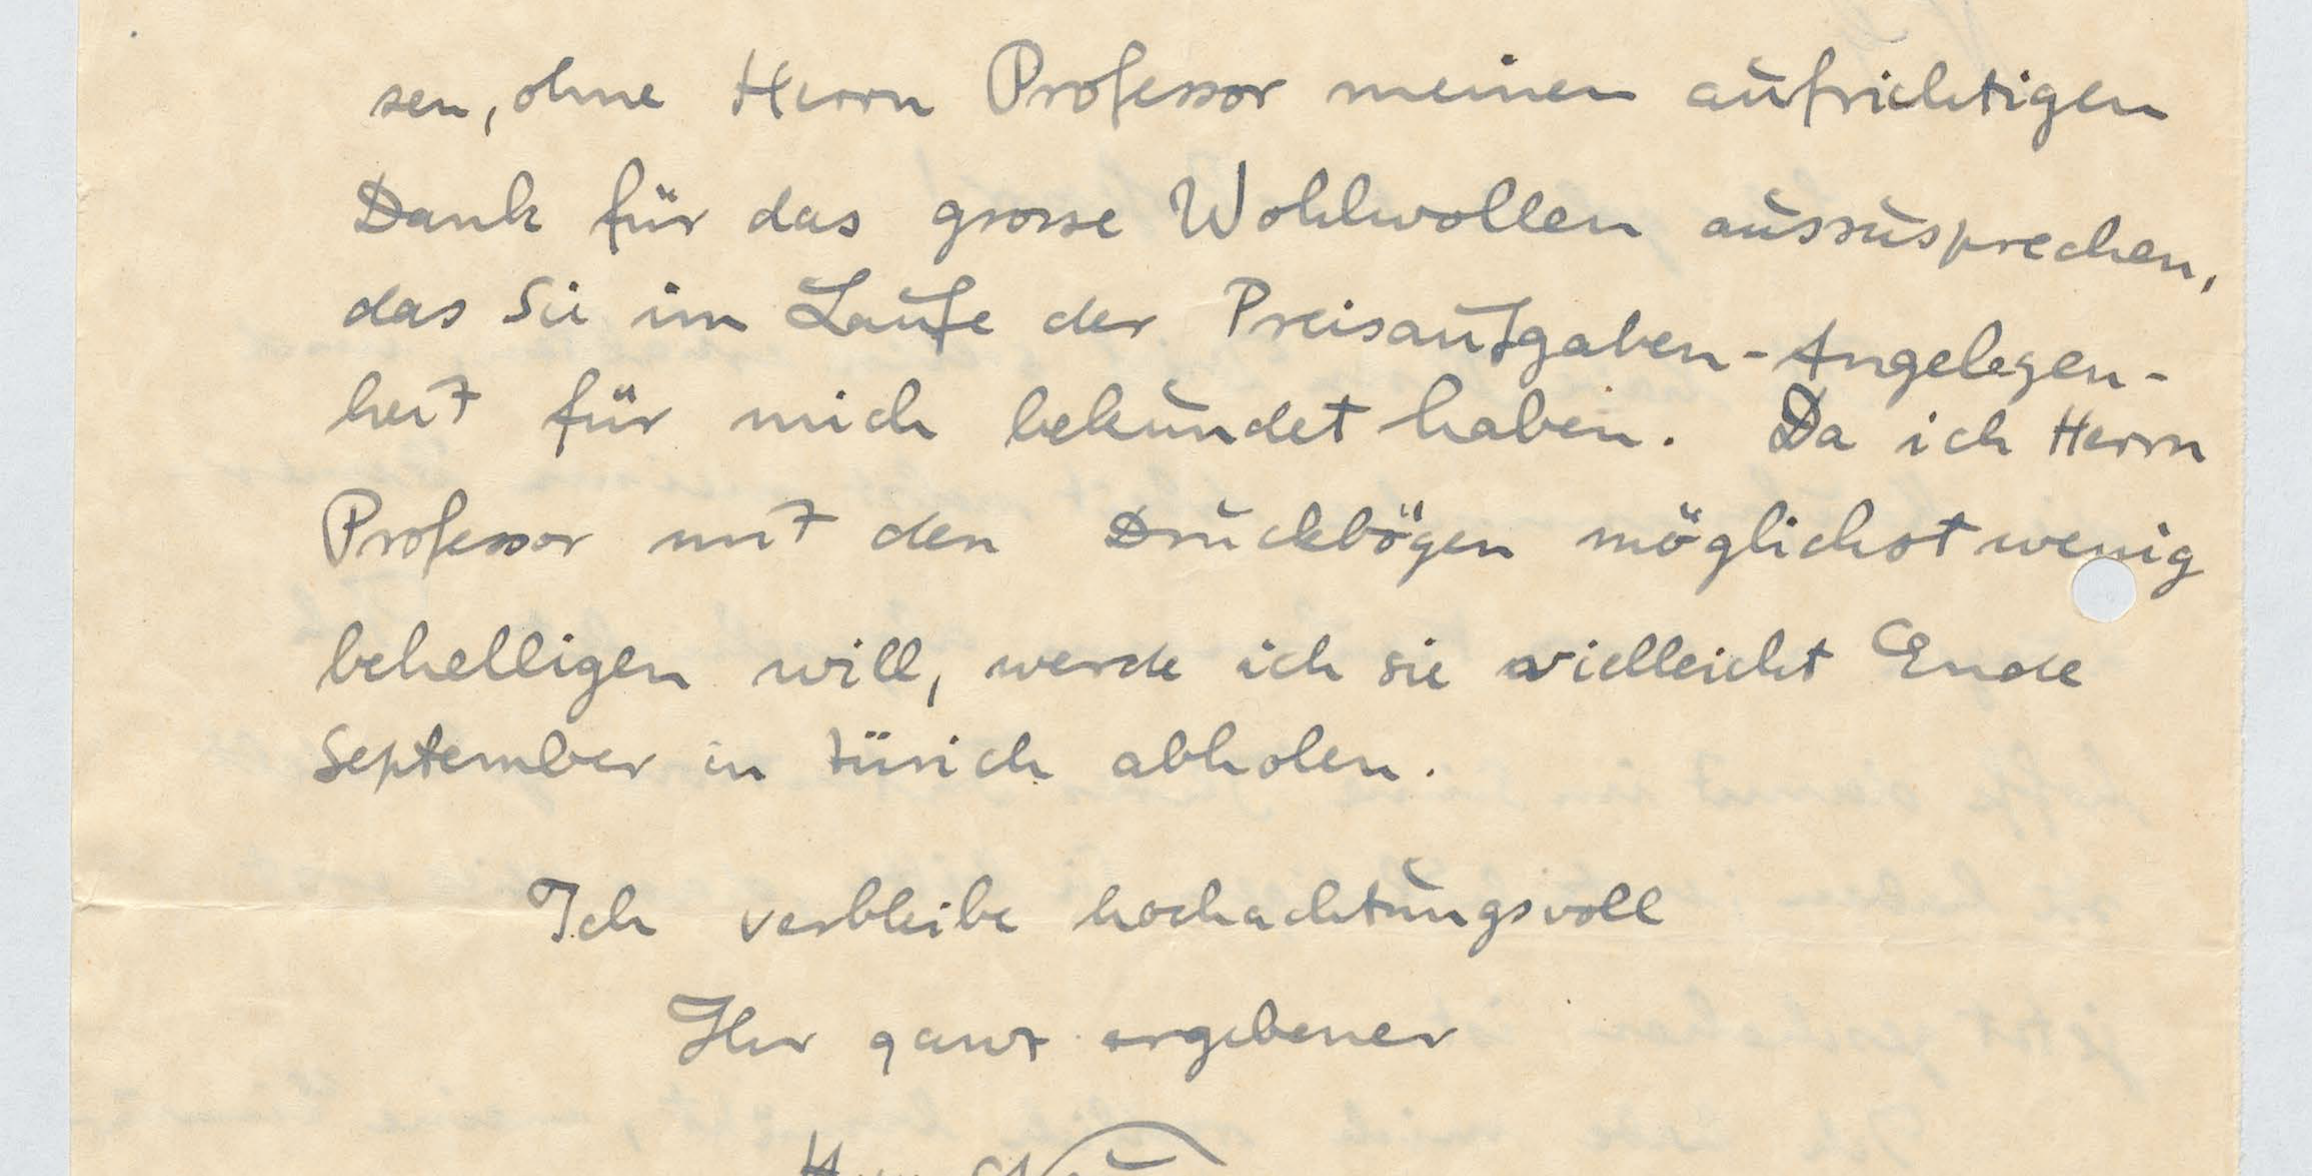 sen, ohne Herrn Professor meinen aufrichtigen
Dank für das grosse Wohlwollen auszusprechen,
das Sie im Laufe der Preisaufgaben-Angelegen-
heit für mich bekundet haben. Da ich Herrn
Professor mit den Druckbögen möglichst wenig
behelligen will, werde ich sie vielleicht Ende
September in Zürich abholen.
Ich verbleibe hochachtungsvoll
Ihr ganz ergebener